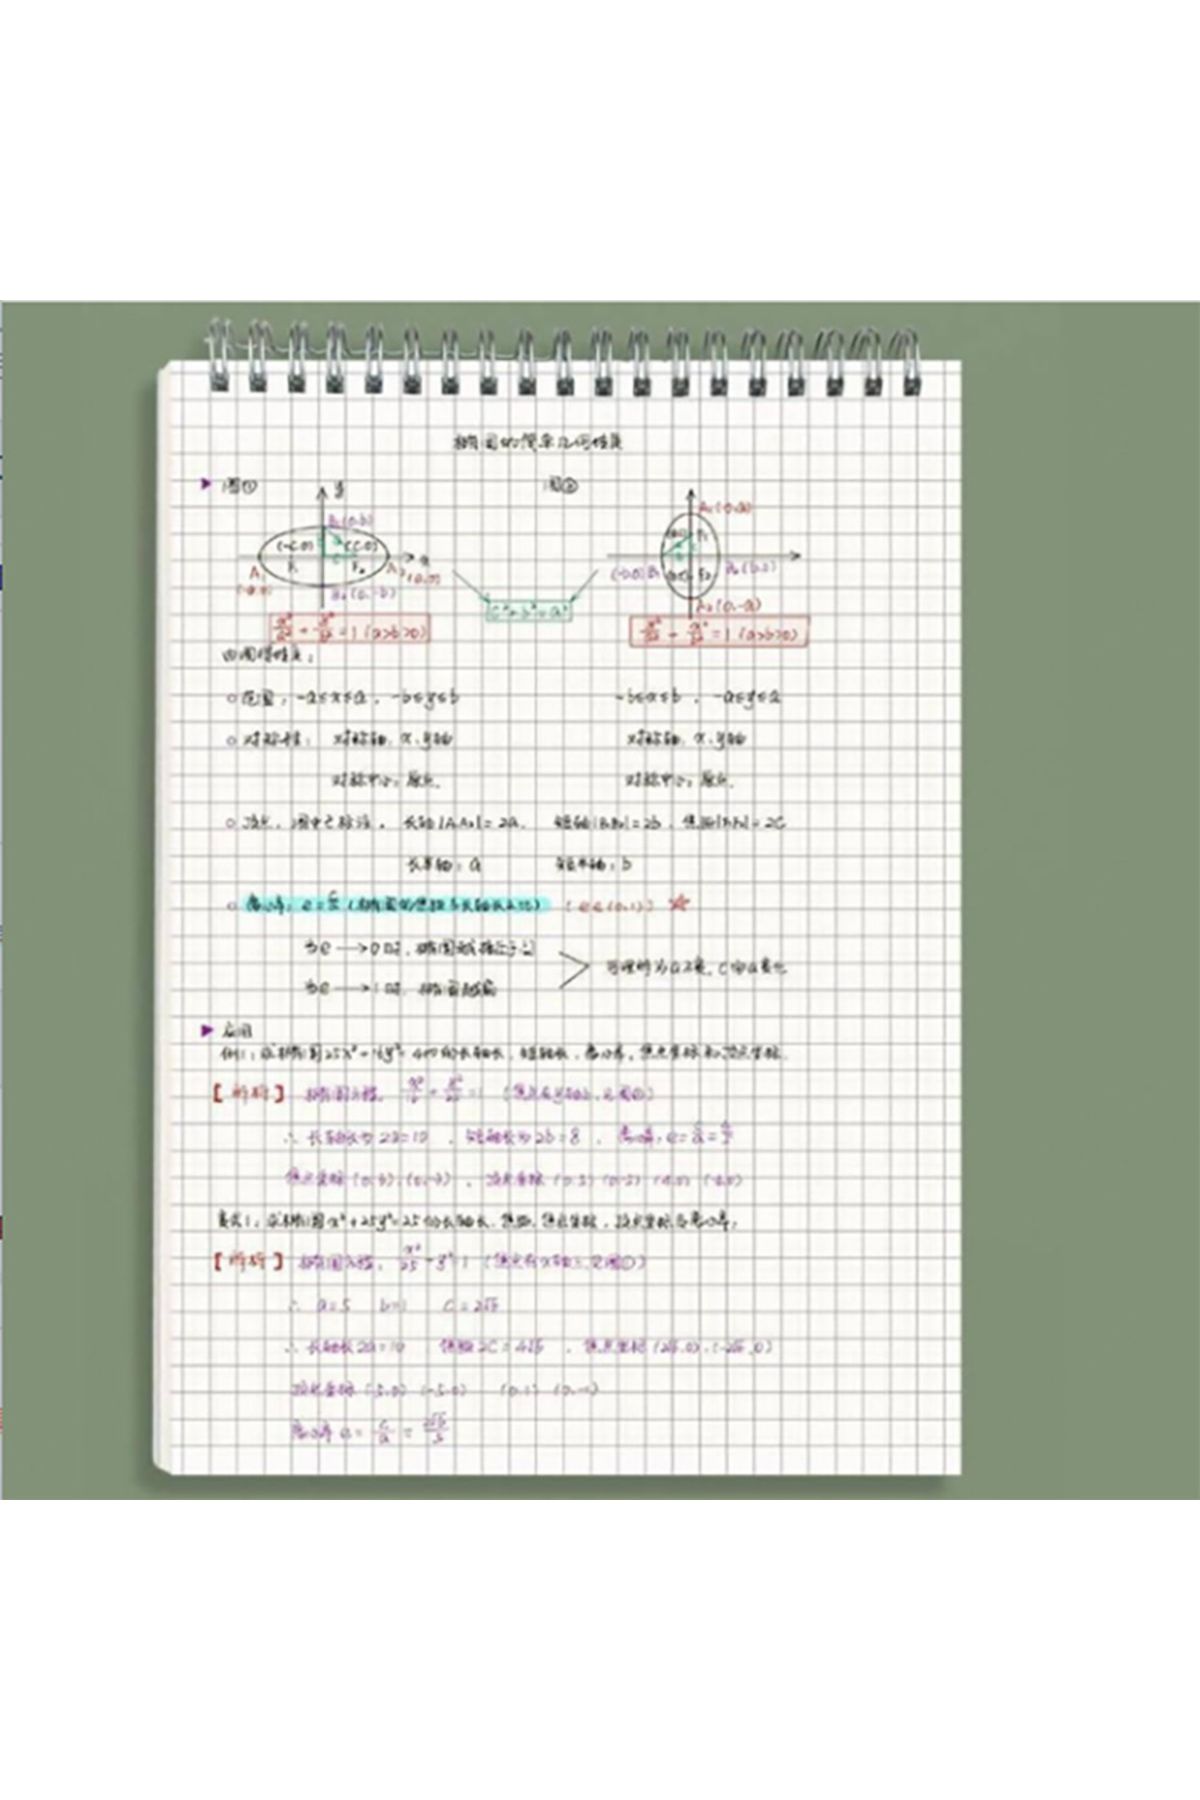 椭圆的简单几何性质
图① 图②
y
B₁(0,b) A₁(0,a)
(-c,0) (c,0) x F₁
F₁ F₂ A₂(a,0) (-b,0) B₁ F₂ B₂(b,0)
A₁
(-a,0) B₂(0,-b) c²+b²=a² A₂(0,-a)
x²/a² + y²/b² = 1 (a>b>0)
= 1 (a>b>0)
范围: -a≤x≤a, -b≤y≤b -b≤x≤b, -a≤y≤a
对称性: 对称轴: x、y轴 对称轴: x、y轴
对称中心: 原点. 对称中心: 原点.
顶点: 图中已标注, 长轴|A₁A₂|=2a, 短轴|B₁B₂|=2b, 焦距|F₁F₂|=2c
长半轴: a 短半轴: b
离心率: e=c/a (椭圆的焦距与长轴长之比) (e∈(0,1)) ☆
当e→0时, 椭圆越接近于圆
可理解为a不变, c向a变化
当e→1时, 椭圆越扁
应用
例1: 求椭圆25x²+16y²=400的长轴长、短轴长、离心率、焦点坐标和顶点坐标.
【解析】椭圆方程: x²/16 + y²/25 = 1 (焦点在y轴上, 见图②)
∴ 长轴长为2a=10, 短轴长为2b=8, 离心率: e=c/a=3/5
焦点坐标 (0,3),(0,-3), 顶点坐标 (0,5) (0,-5) (4,0) (-4,0)
变式1: 求椭圆x²+25y²=25的长轴长、焦距、焦点坐标, 顶点坐标与离心率;
【解析】椭圆方程: x²/25 + y² = 1 (焦点在x轴上, 见图①)
∴ a=5 b=1 c=2√6
∴ 长轴长2a=10 焦距2c=4√6, 焦点坐标 (2√6,0),(-2√6,0)
顶点坐标 (5,0) (-5,0) (0,1) (0,-1)
离心率 e = c/a = 2√6/5